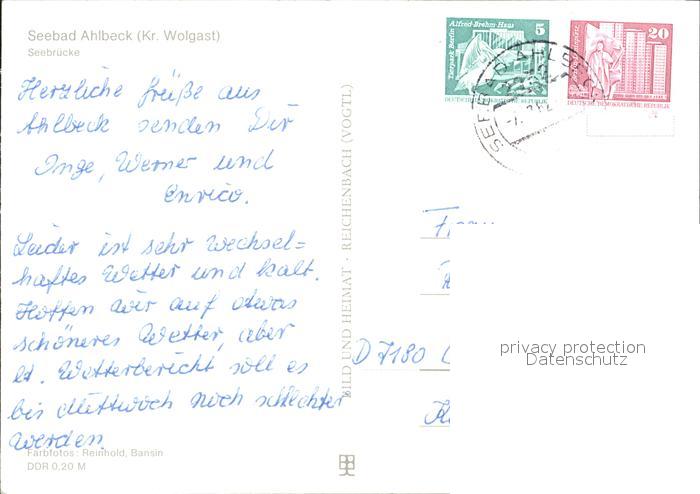 Seebad Ahlbeck (Kr. Wolgast)
Seebrücke
Herzliche Grüße aus
Ahlbeck senden Dir
Inge, Werner und
Enrico.
Leider ist sehr wechsel=
haftes Wetter und kalt.
Hoffen wir auf etwas
schöneres Wetter, aber
lt. Wetterbericht soll es
bis Mittwoch noch schlechter
werden.
Farbfotos: Reinhold, Bansin
DDR 0,20 M
BILD UND HEIMAT · REICHENBACH (VOGTL)
Alfred-Brehm-Haus
5
Tierpark Berlin
DEUTSCHE DEMOKRATISCHE REPUBLIK
20
DEUTSCHE DEMOKRATISCHE REPUBLIK
SEEBAD AHLBECK
D 7180
privacy protection
Datenschutz